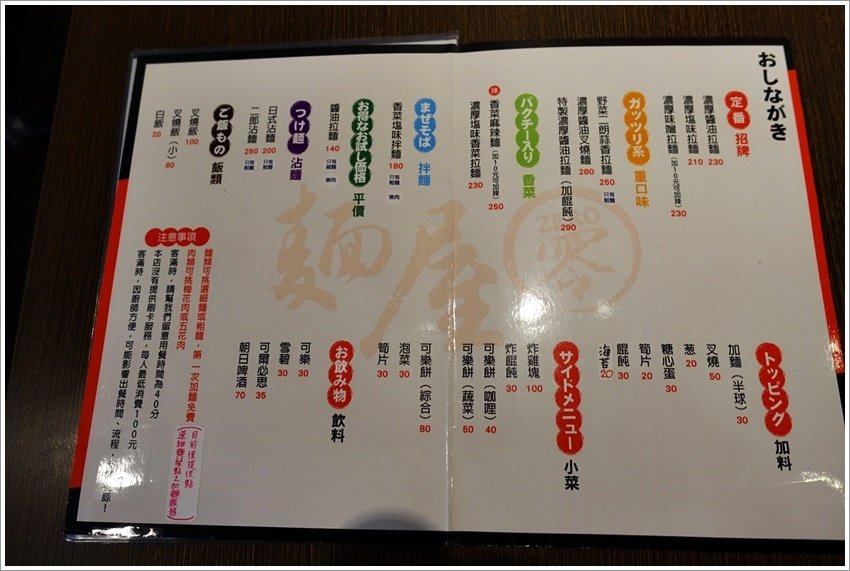 おしながき
定番 招牌
濃厚醬油拉麵 230
濃厚塩味拉麵 210
濃厚味噌拉麵(加10元可加辣) 230
ガッツリ系 重口味
野菜二朗蒜香拉麵 250 只有粗麵
濃厚醬油叉燒麵 280
特製濃厚醬油拉麵(加餛飩) 290
パクチー入り 香菜
辣 香菜麻辣麵(加10元可加辣) 250
濃厚塩味香菜拉麵 230
まぜそば 拌麵
香菜塩味拌麵 180 只有粗麵 無肉
お得なお試し価格 平價
醬油拉麵 140 只有細麵 無肉
つけ麺 沾麵
日式沾麵 200 只有粗麵
二郎沾麵 250 只有粗麵
ご飯もの 飯類
叉燒飯 100
叉燒飯(小) 60
白飯 20
トッピング 加料
加麵(半球) 30
叉燒 50
蔥 20
糖心蛋 30
筍片 20
餛飩 30
海苔 20
サイドメニュー 小菜
炸雞塊 100
炸餛飩 30
可樂餅(咖哩) 40
可樂餅(蔬菜) 50
可樂餅(綜合) 80
泡菜 30
筍片 30
お飲み物 飲料
可樂 30
雪碧 30
可爾必思 35
朝日啤酒 70
注意事項
麵類可挑選細麵或粗麵，第一次加麵免費
肉類可挑梅花肉或五花肉
客滿時，請幫我們留意用餐時間為40分
本店沒有提供刷卡服務，每人最低消費100元
客滿時，因廚師方便，可能影響出餐時間、流程，諒！
目前僅提供點
麵屋 零
ZERO